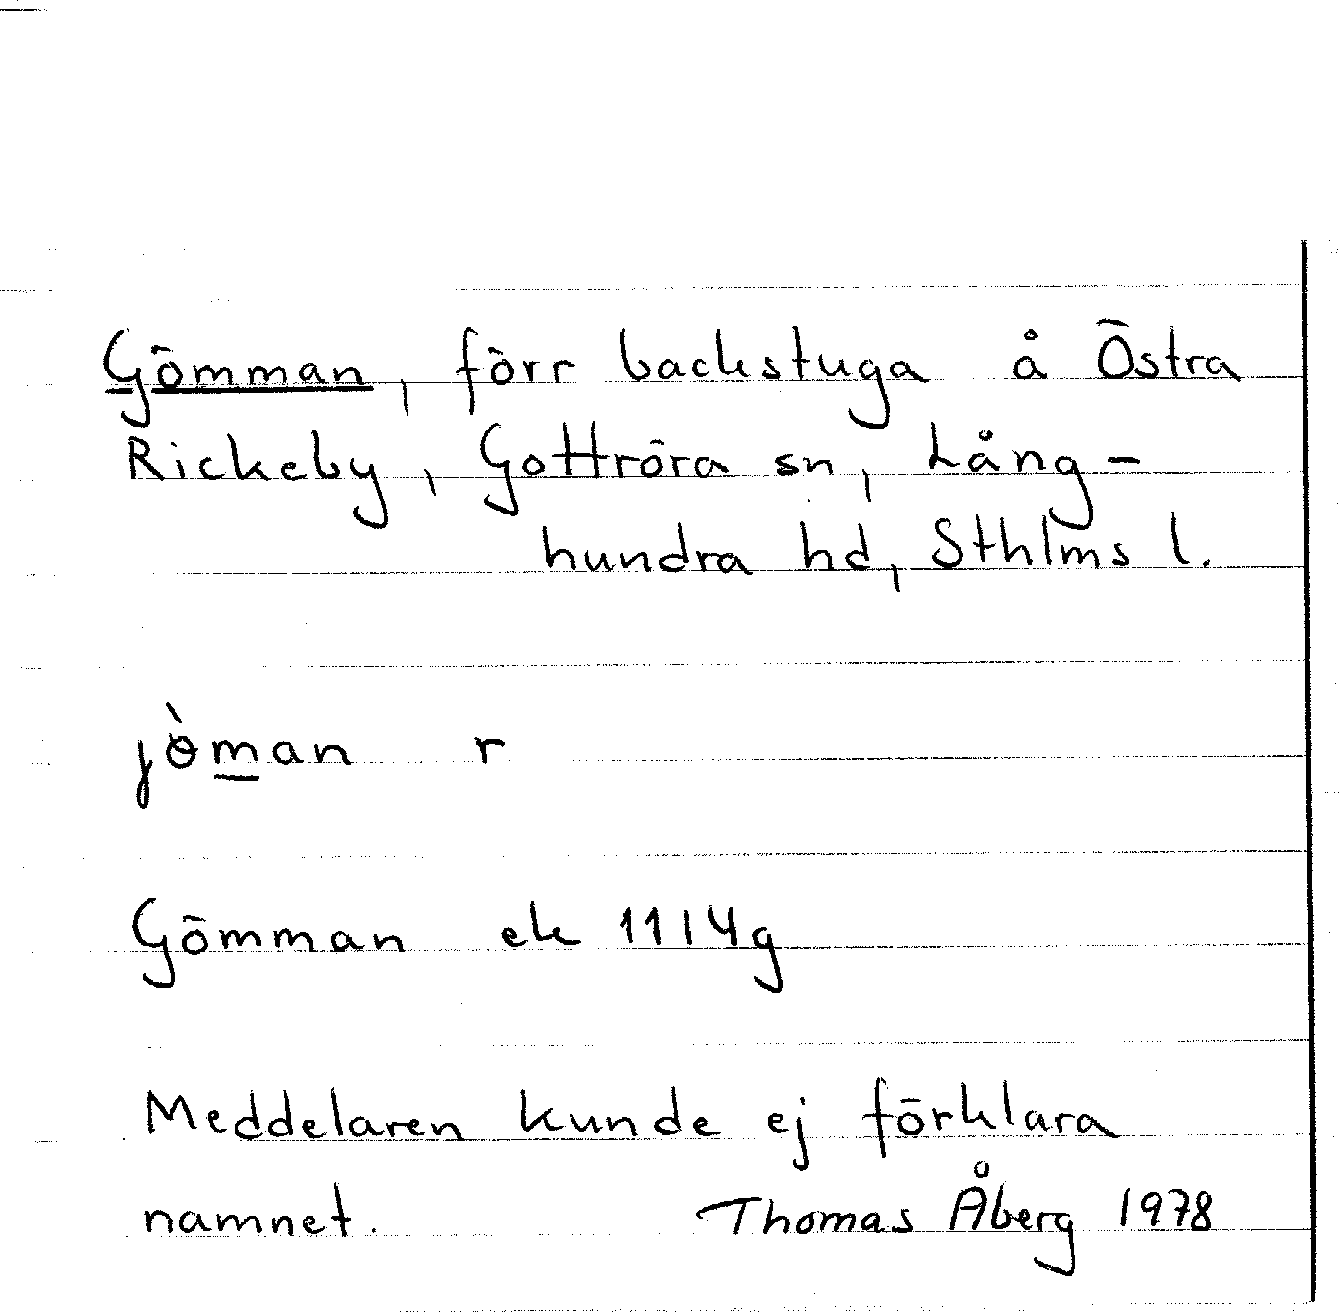 Gömman, förr backstuga å Östra
Rickeby, Gottröra sn, Lång-
hundra hd, Sthlms l.
jò̵man r
Gömman ek 11I4g
Meddelaren kunde ej förklara
namnet. Thomas Åberg 1978